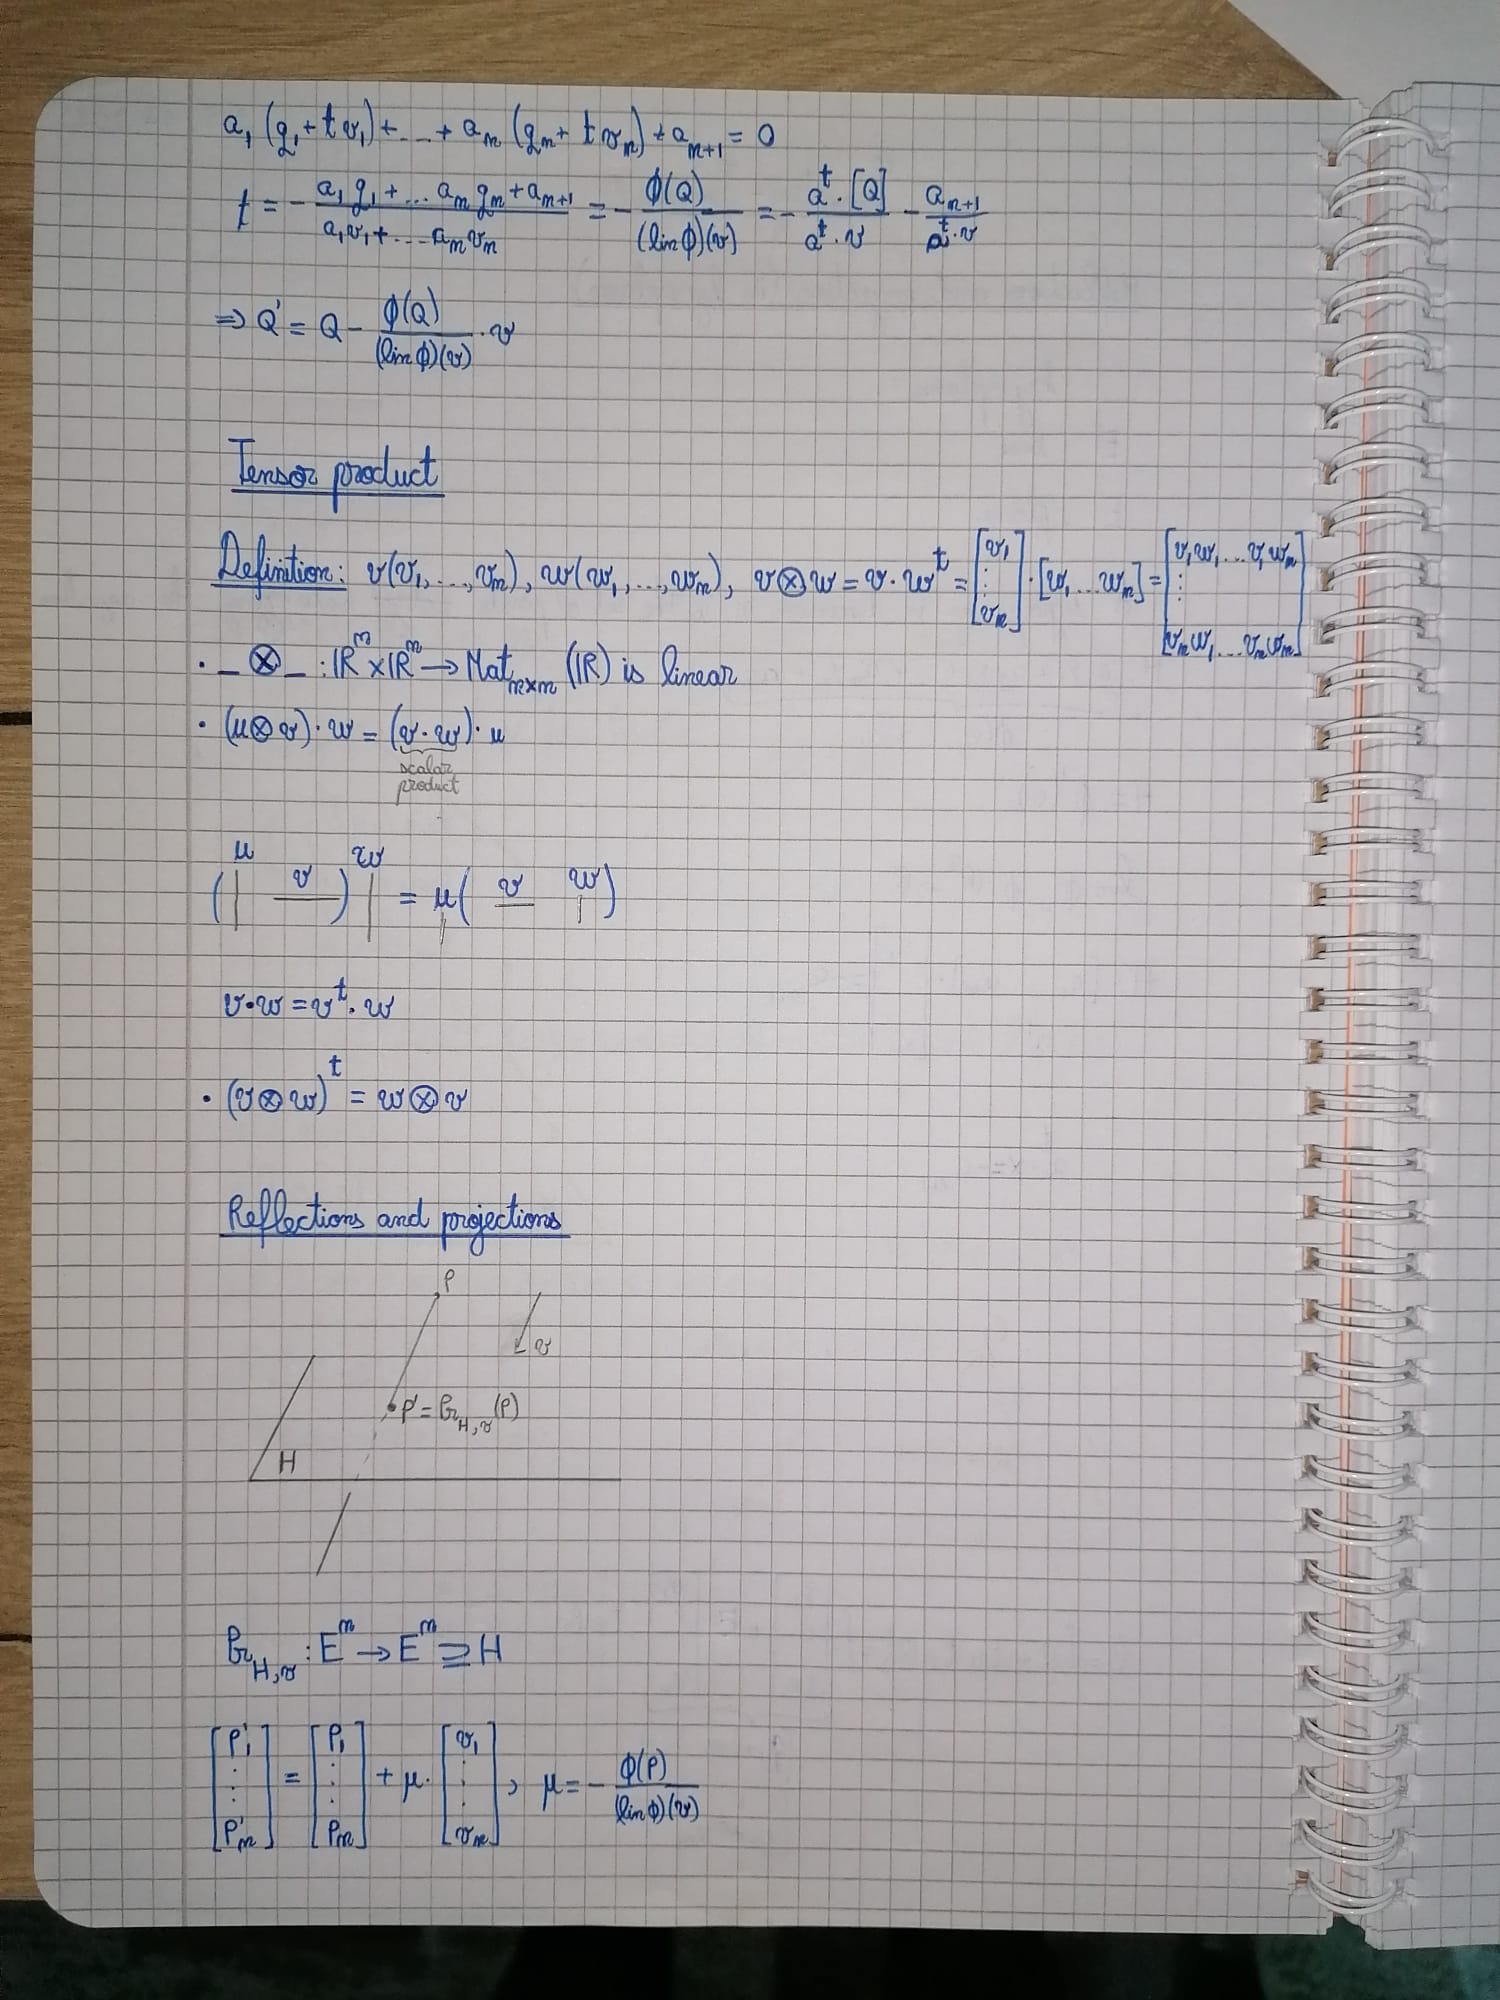 a₁(q₁+tv₁)+...+aₙ(qₙ+tvₙ)+aₙ₊₁=0
t = - (a₁q₁+...aₙqₙ+aₙ₊₁)/(a₁v₁+...aₙvₙ) = - ϕ(Q)/(lin ϕ)(v) = - (aᵗ·[Q])/(aᵗ·v) - aₙ₊₁/(aᵗ·v)
⇒ Q' = Q - ϕ(Q)/(lin ϕ)(v) · v
Tensor product
Definition: v(v₁,...,vₙ), w(w₁,...,wₙ), v⊗w = v·wᵗ = [v₁ ⋮ vₙ]·[w₁...wₙ] = [v₁w₁...v₁wₙ ⋮ vₙw₁...vₙwₙ]
• _⊗_ : ℝⁿ×ℝⁿ → Matₙₓₙ(ℝ) is linear
• (u⊗v)·w = (v·w)·u
scalar
product
(u| v―) w| = u|( v― w| )
v•w = vᵗ·w
• (v⊗w)ᵗ = w⊗v
Reflections and projections
P
v
P' = Pr_H,v(P)
H
Pr_H,v : Eⁿ → Eⁿ ⊇ H
[p'₁ ⋮ p'ₙ] = [p₁ ⋮ pₙ] + μ·[v₁ ⋮ vₙ], μ = - ϕ(P)/(lin ϕ)(v)